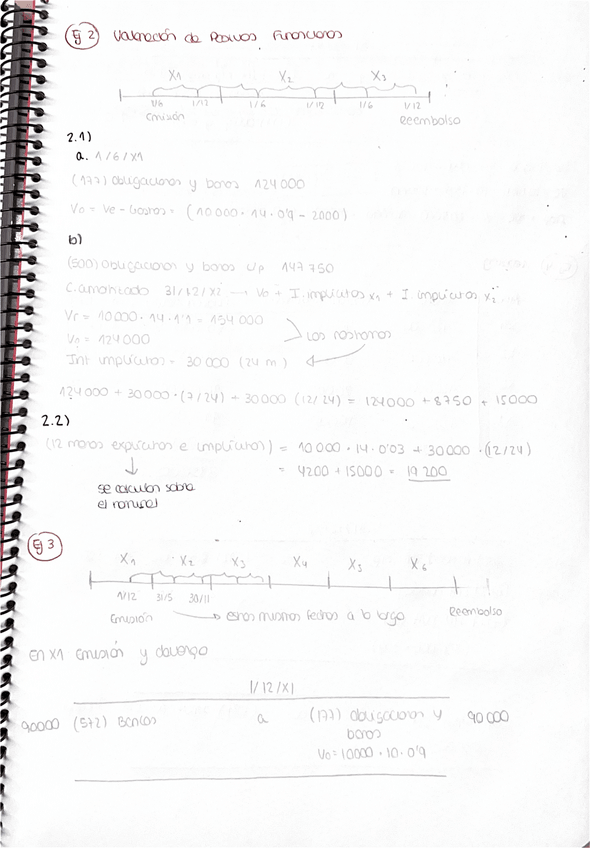 Ej 2 Valoración de Pasivos Financieros
X1 X2 X3
1/6 1/12 1/6 1/12 1/6 1/12
Emisión Reembolso
2.1)
a. 1/6/X1
(177) Obligaciones y bonos 124000
V0 = Ve - Gastos = (10000 · 14 · 0'9 - 2000)
b)
(500) Obligaciones y bonos c/p 147750
C. amortizado 31/12/X2 → V0 + I. implícitos X1 + I implícitos X2
Vr = 10000 · 14 · 1'1 = 154000
V0 = 124000 > Los restamos
Int implícitos = 30000 (24 m)
124000 + 30000 · (7/24) + 30000 (12/24) = 124000 + 8750 + 15000
2.2)
(12 meses explícitos e implícitos) = 10000 · 14 · 0'03 + 30000 · (12/24)
= 4200 + 15000 = 19200
se calculan sobre
el nominal
Ej 3
X1 X2 X3 X4 X5 X6
1/12 31/5 30/11
Emisión → estas mismas fechas a lo largo Reembolso
En X1 Emisión y devengo
1/12/X1
90000 (572) Bancos a (177) Obligaciones y 90000
bonos
V0 = 10000 · 10 · 0'9